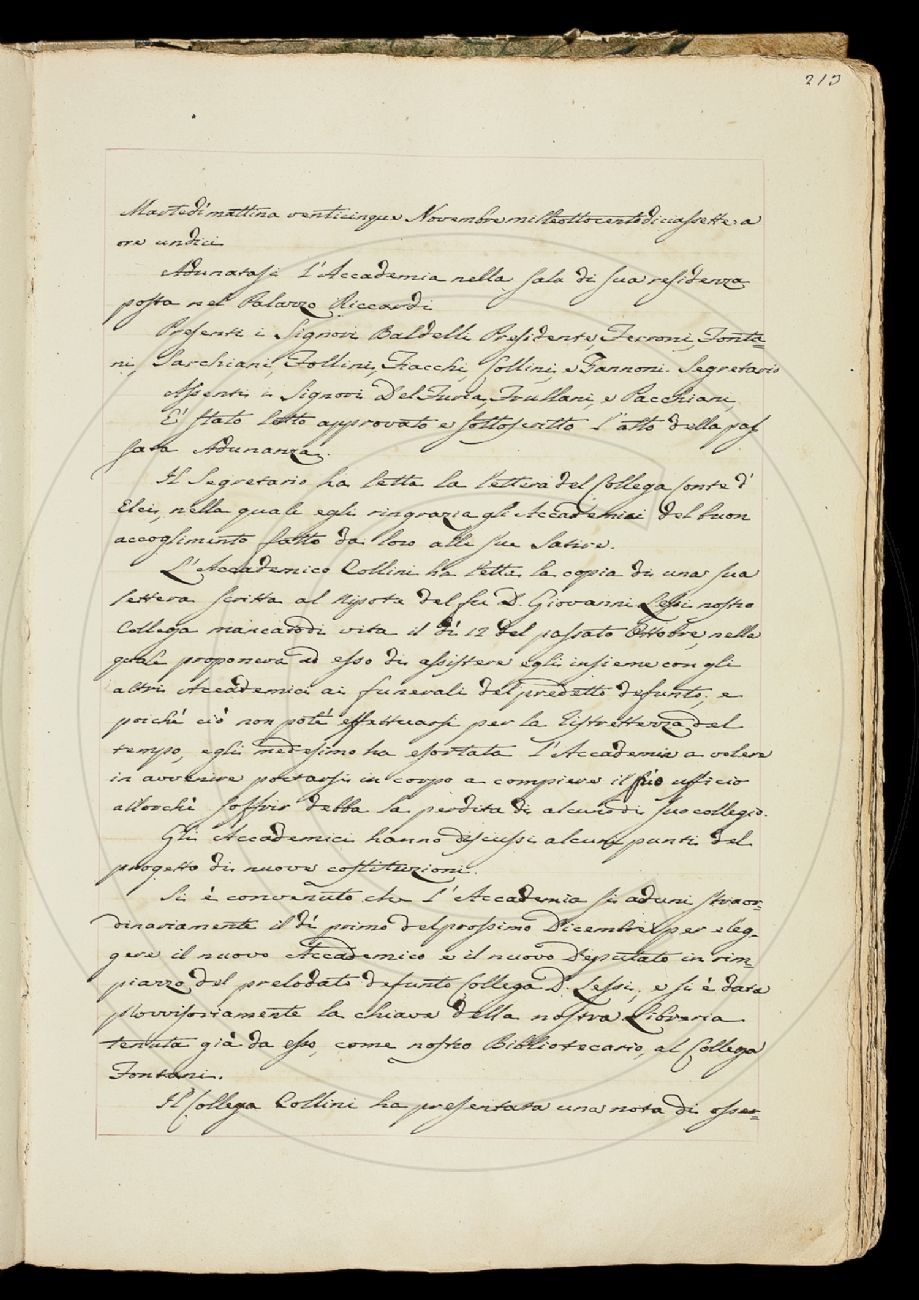 213
Martedì mattina venticinque Novembre milleottocentodiciassette a
ore undici
Adunatasi l'Accademia nella sala di sua residenza
posta nel Palazzo Riccardi
Presenti i Signori Baldelli Presidente, Ferroni, Fonta=
ni, Sarchiani, Follini, Fiacchi, Collini, e Zannoni Segretario
Assenti i Signori Del Furia, Frullani, e Pacchiani
E' stato letto approvato e sottoscritto l'atto della pas
sata Adunanza.
Il Segretario ha letta la lettera del Collega Conte d'
Elci, nella quale egli ringrazia gli Accademici del buon
accoglimento fatto da loro alle sue Satire.
L'Accademico Collini ha letta la copia di una sua
lettera scritta al nipote del fu D. Giovanni Lessi nostro
Collega mancato di vita il dì 12 del passato Ottobre, nella
quale proponeva ad esso di assistere egli insieme con gli
altri Accademici ai funerali del predetto defunto; e
poichè ciò non potè effettuarsi per la ristrettezza del
tempo, egli medesimo ha esortata l'Accademia a volere
in avvenire portarsi in corpo a compiere il suo ufficio
allorchè soffrir debba la perdita di alcuno di suo collegio.
Gli Accademici hanno discussi alcuni punti del
progetto di nuove costituzioni.
Si è convenuto che l'Accademia si aduni straor=
dinariamente il dì primo del prossimo Dicembre per eleg=
gere il nuovo Accademico e il nuovo Deputato in rim=
piazzo del prelodato defunto Collega D. Lessi, e si è data
provvisoriamente la chiave della nostra Libreria
tenuta già da esso, come nostro Bibliotecario, al Collega
Fontani.
Il Collega Collini ha presentata una nota di osser=